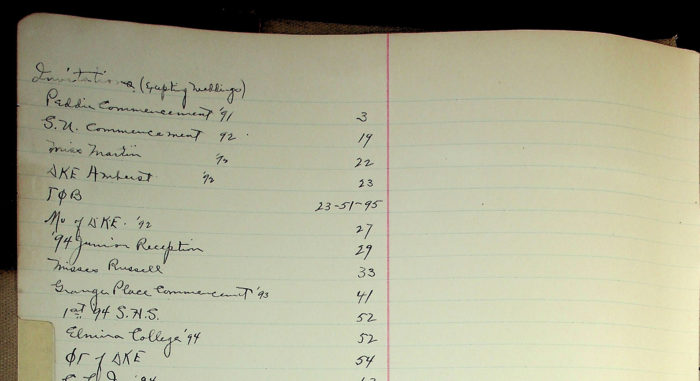 Invitations (Excepting Weddings)
Peddie Commencement '91 3
S.U. Commencement '92 19
Miss Martin '92 22
ΔKE Amherst '92 23
ΓΦΒ 23-51-95
Mu of ΔKE. '92 27
'94 Junior Reception 29
Misses Russell 33
Granger Place Commencement '93 41
1st '94 S.H.S. 52
Elmira College '94 52
ΦΓ of ΔKE 54